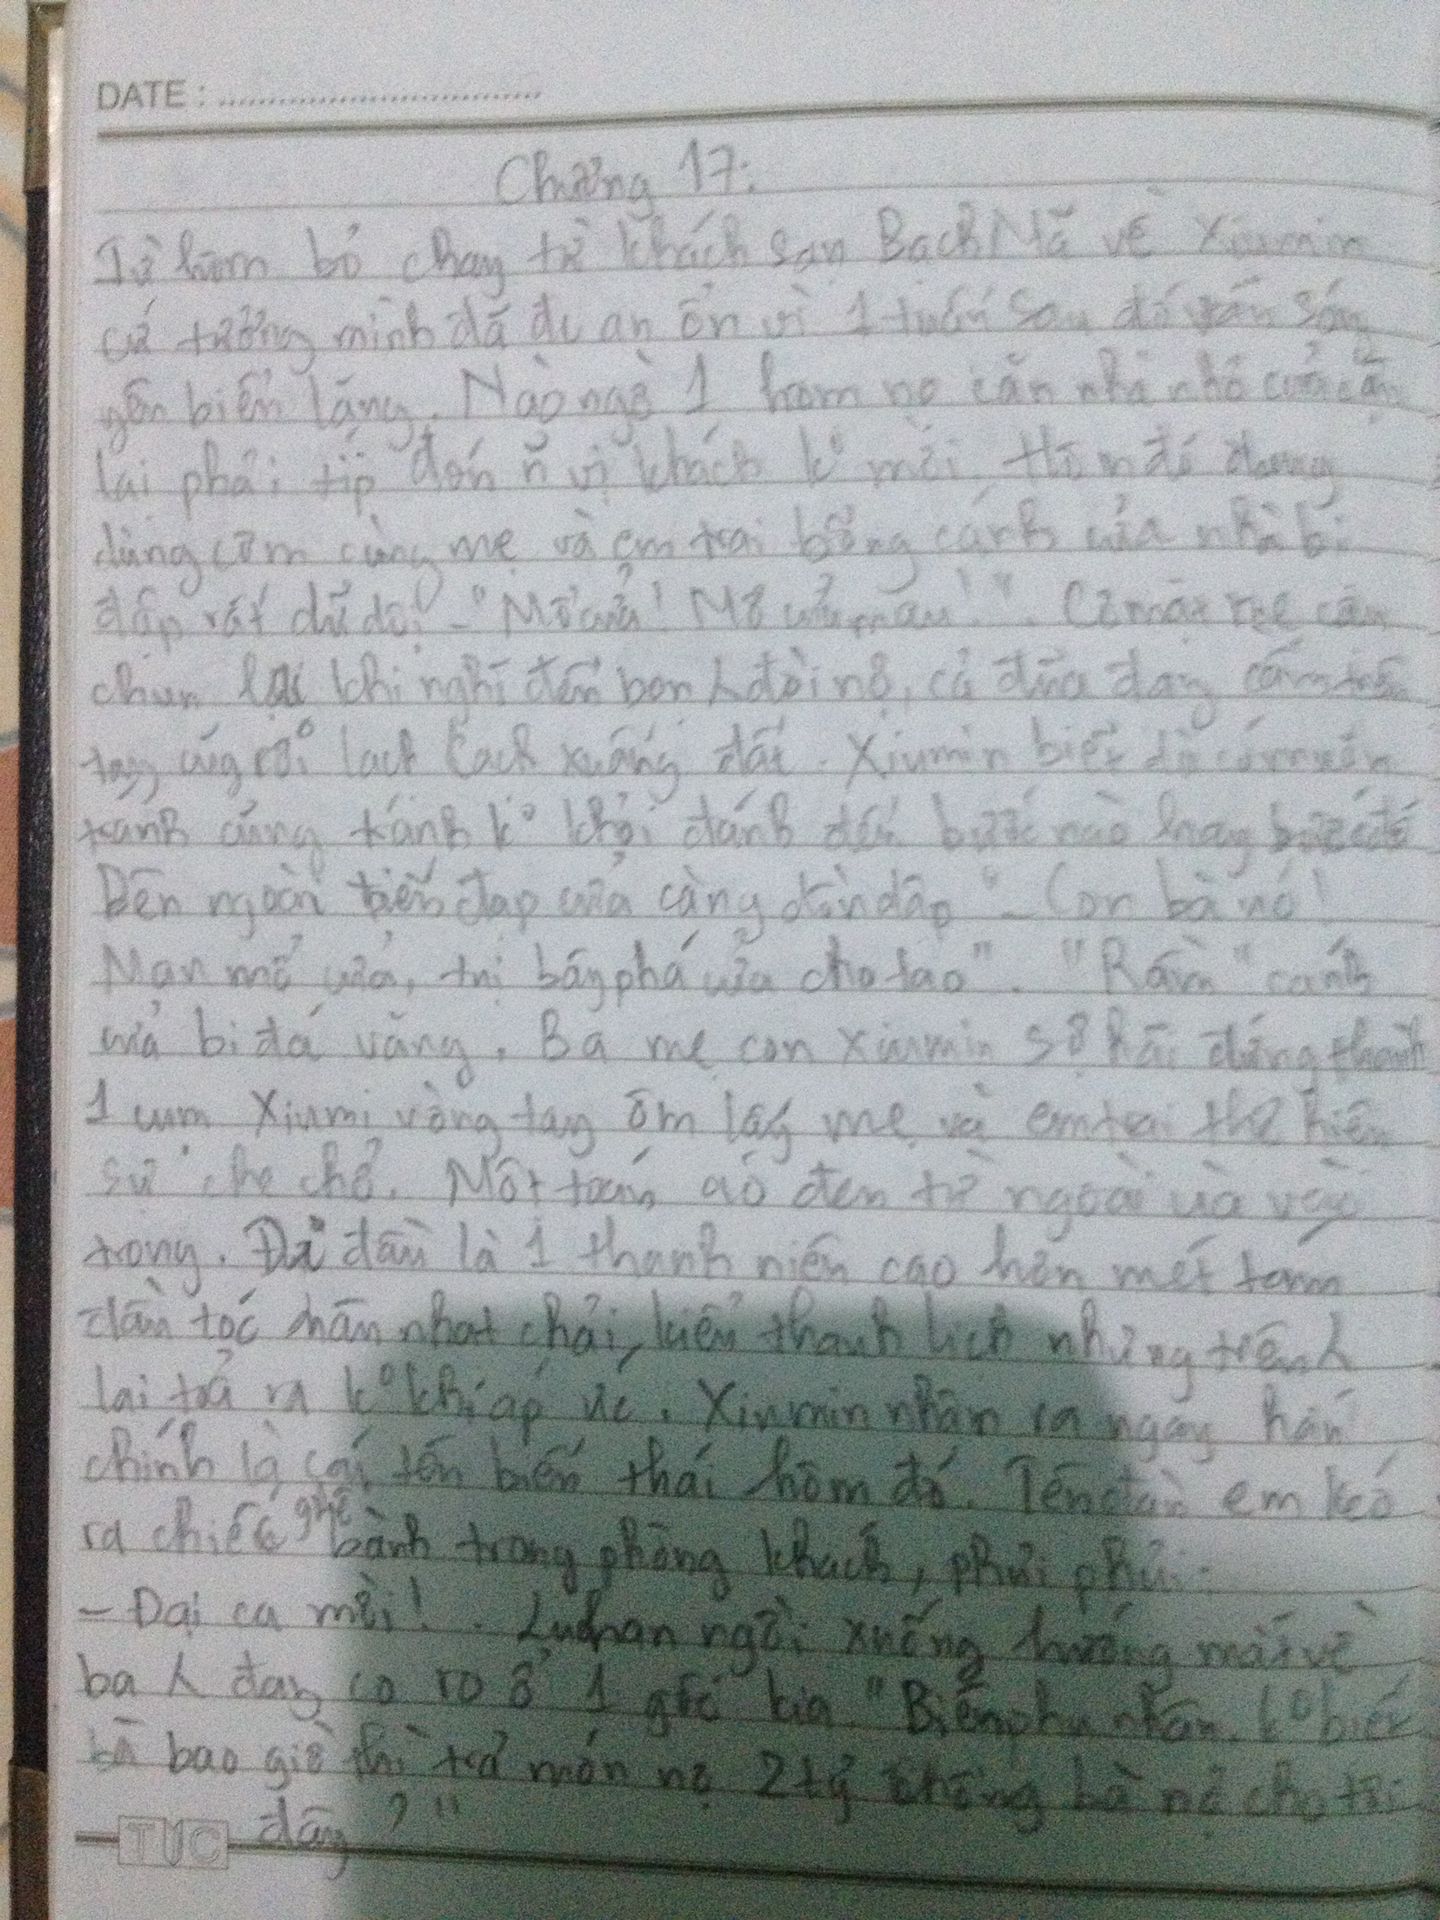 DATE :
Chương 17:
Từ hôm bỏ chạy từ khách sạn Bạch Mã về Xiumin
cứ tưởng mình đã đc an ổn vì 1 tuần sau đó vẫn sóng
yên biển lặng. Nào ngờ 1 hôm nọ căn nhà nhỏ của cậu
lại phải tiếp đón n vị khách k° mời. Hôm đó đang
dùng cơm cùng mẹ và em trai bỗng cánh cửa nhà bị
đập rất dữ dội - "Mở cửa! Mở cửa mau!". Cơ mặt mẹ cậu
chùn lại khi nghĩ đến bọn đòi nợ, cả đũa đang cầm trên
tay cũng rơi lạch cạch xuống đất. Xiumin biết dù có muốn
tránh cũng tránh k° khỏi đành đến bước nào hay bước đó
Bên ngoài tiếng đạp cửa càng dồn dập "- Con bà nó!
Mạn mở cửa, tụi bây phá cửa cho tao". "Rầm" cánh
cửa bị đá văng. Ba mẹ con Xiumin sợ hãi đứng thành
1 cụm Xiumi vòng tay ôm lấy mẹ và em trai thể hiện
sự che chở. Một toán áo đen từ ngoài ùa vào
trong. Đi đầu là 1 thanh niên cao hơn mét tám
đầu tóc nhạt chải, kiểu thanh lịch nhưng trên
lại toả ra k° khí áp ức. Xiumin nhận ra ngay hắn
chính là cái tên biến thái hôm đó. Tên đàn em kéo
ra chiếc ghế bành trong phòng khách, phủi phủi:
- Đại ca mời!. Luhan ngồi xuống hướng mắt về
ba đang co ro ở 1 góc kia "Biện phu nhân, k° biết
bà bao giờ thì trả món nợ 2 tỷ chồng bà nợ cho tôi
đây?"
TUC